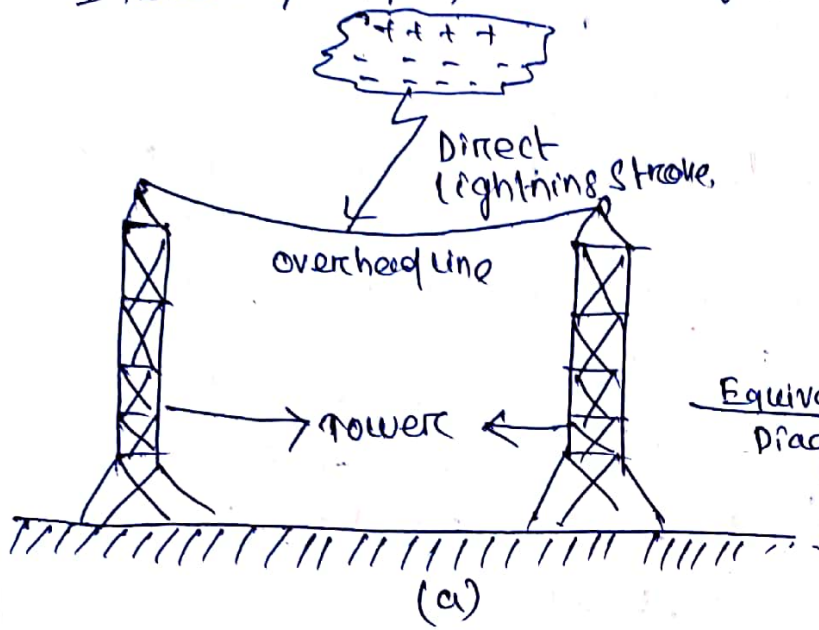 + + + +
- - - -
- - - - -
Direct
lightning Stroke,
overhead line
Tower
Equiv
Diag
(a)